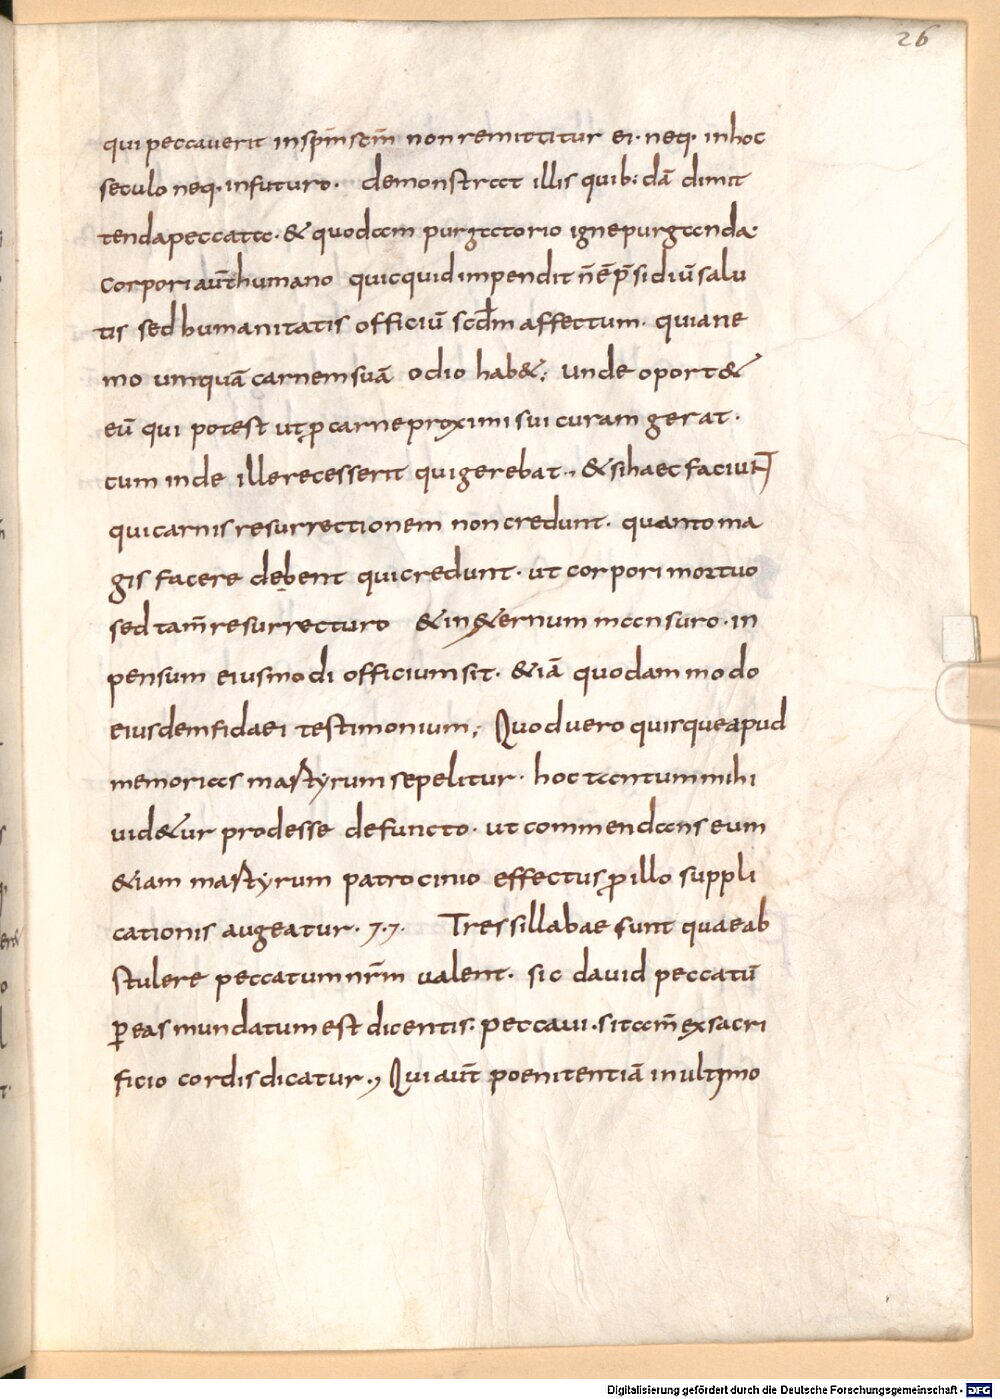 26
qui peccauerit in sp̄m sc̄m non remittitur ei· neq· in hoc
seculo neq· in futuro· demonstrat illis quib; dā dimit
tenda peccata· & quodam purgatorio igne purganda·
Corpori aut̄ humano quicquid impendit n̄ ē p̄sidiū salu
tis sed humanitatis officiū scd̄m affectum· quia ne
mo umquā carnem suā odio hab&; Unde oport&
eū qui potest ut ꝓ carne proximi sui curam gerat·
cum inde ille recesserit qui gerebat·, & si haec faciunt
qui carnis resurrectionem non credunt· quanto ma
gis facere debent qui credunt· ut corpori mortuo
sed tam̄ resurrecturo & in &ernum mansuro· in
pensum eiusmodi officium sit· &iā quodam modo
eiusdem fidaei testimonium; Quod vero quisque apud
memorias martyrum sepelitur· hoc tantum mihi
uid&ur prodesse defuncto· ut commendans eum
&iam martyrum patrocinio effectus ꝓ illo suppli
cationis augeatur· 7·7· Tres sillabae sunt quae ab
stulere peccatum nr̄m valent· sic david peccatū
ꝑ eas mundatum est dicentis· peccavi· si tam̄ ex sacri
ficio cordis dicatur·, Qui aut̄ poenitentiā in ultimo
Digitalisierung gefördert durch die Deutsche Forschungsgemeinschaft - DFG